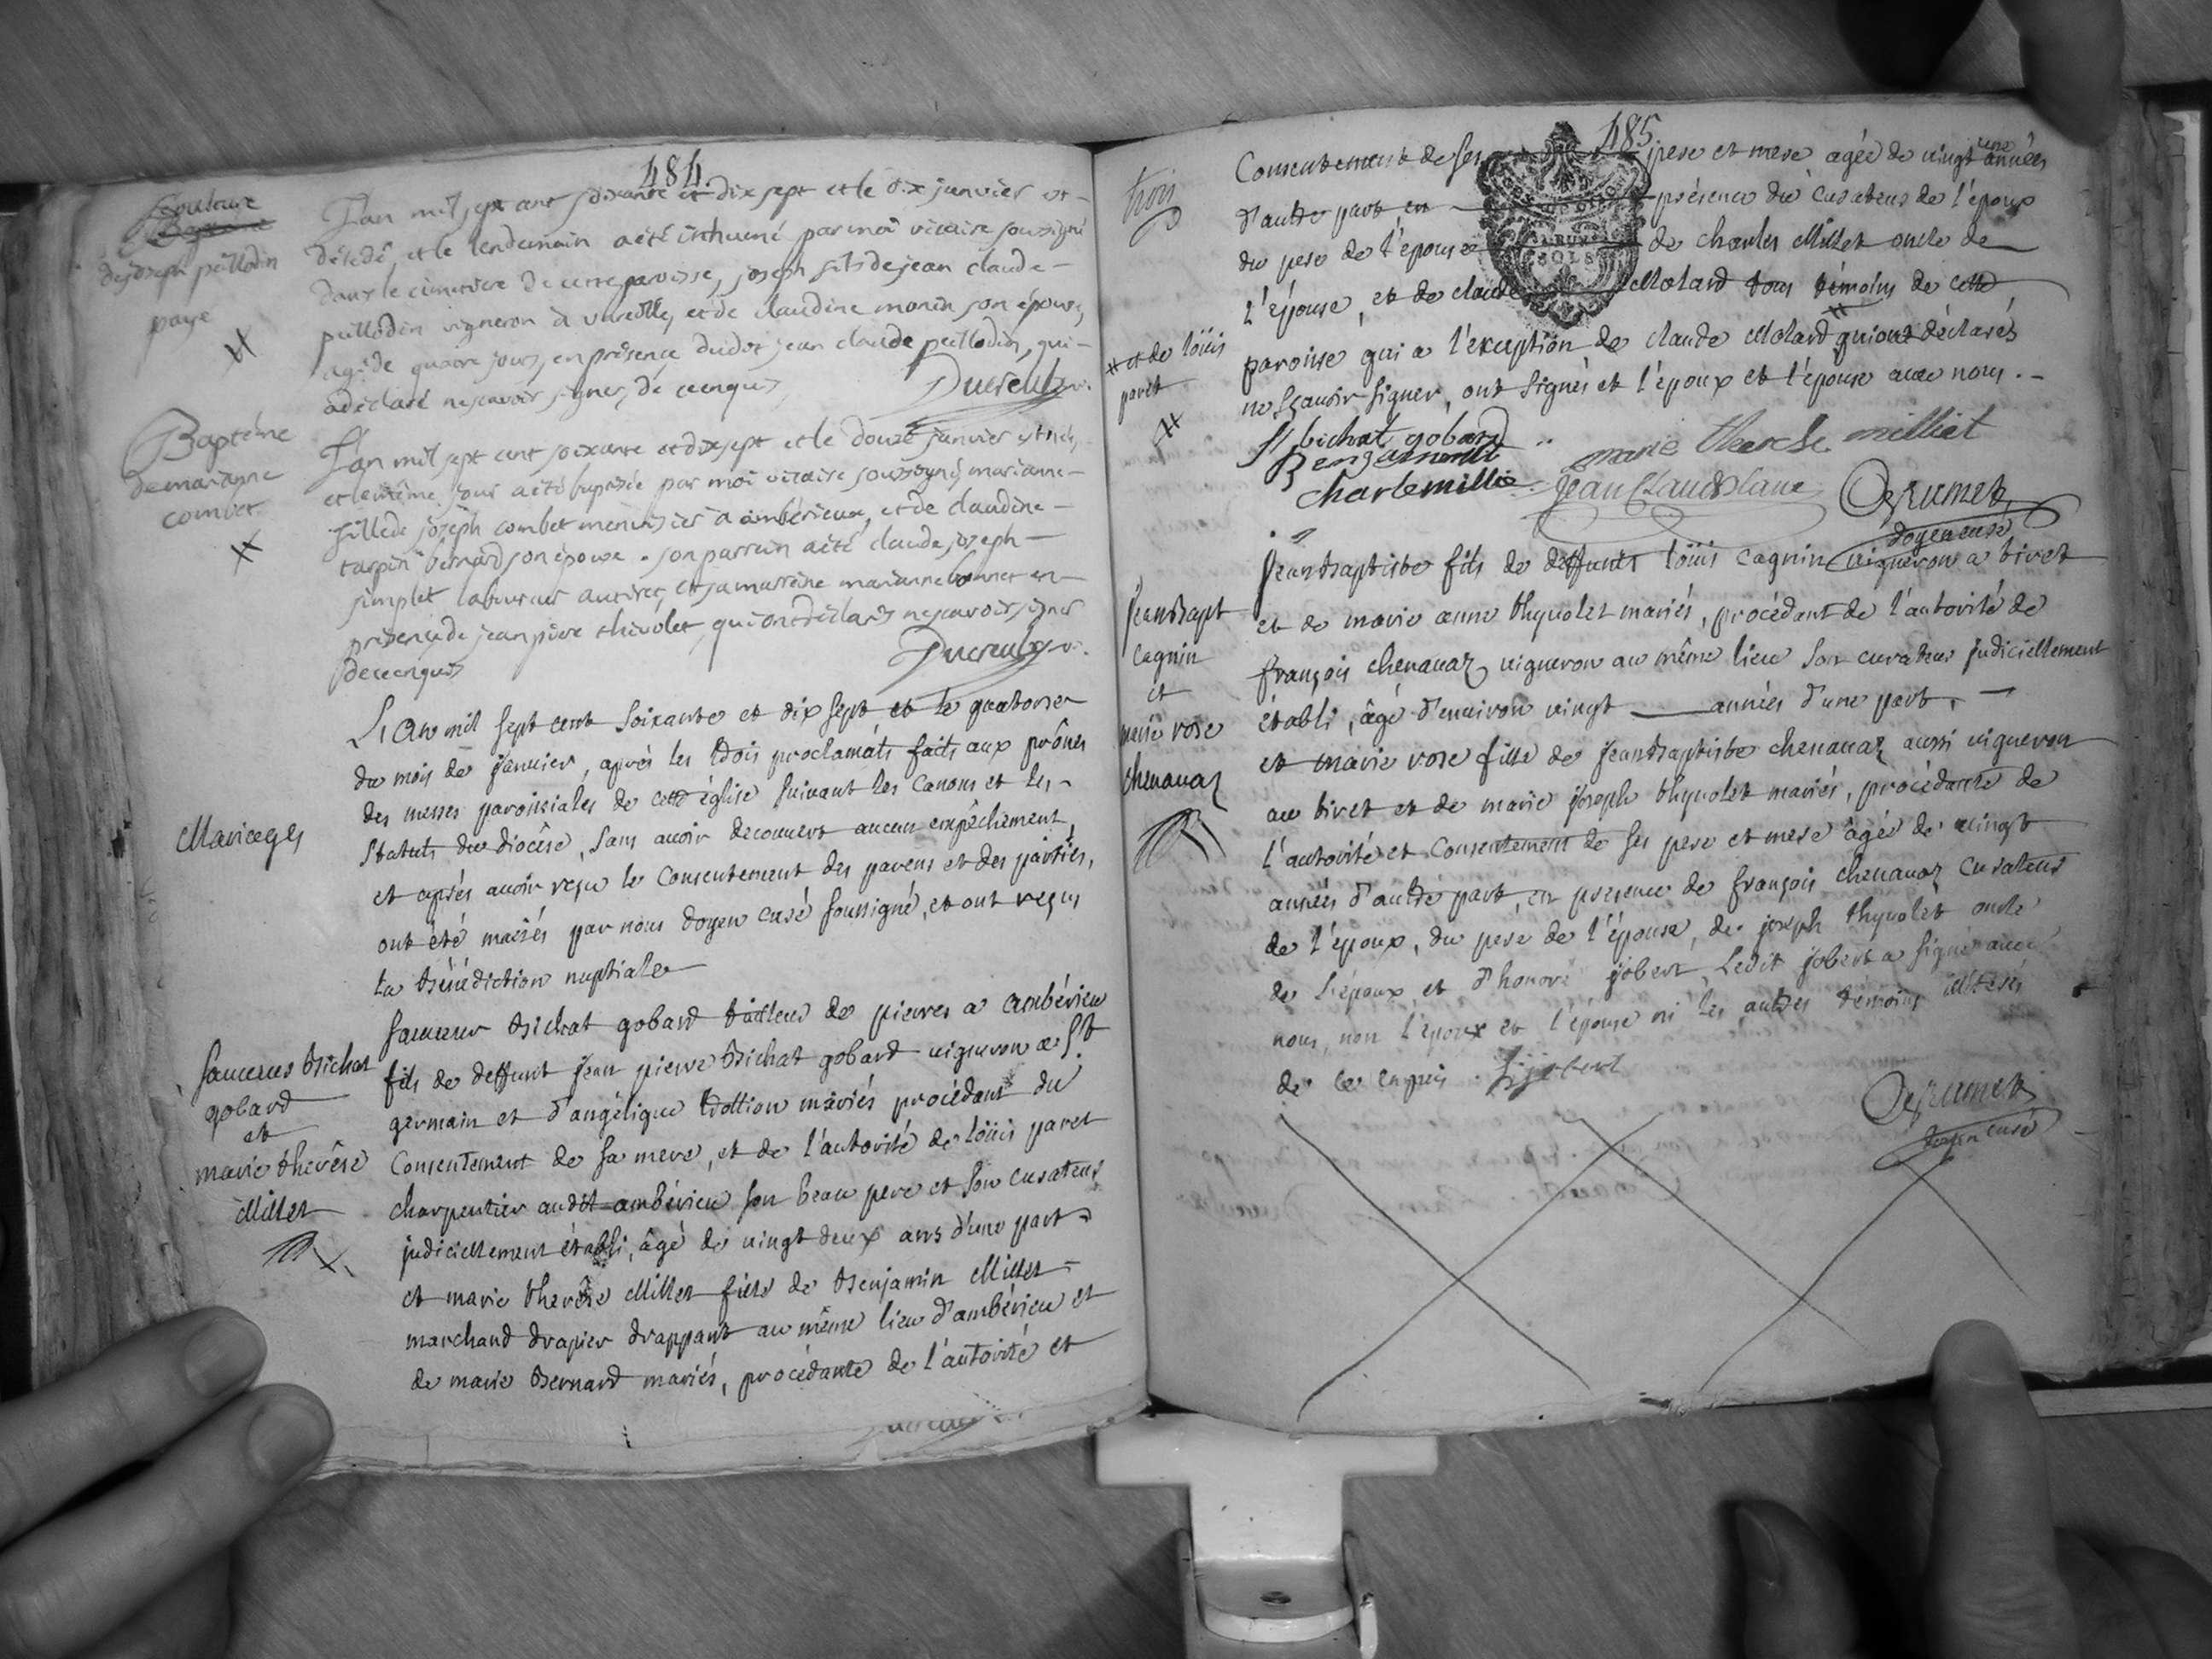 484.
Sepulture
de joseph peillodin
paye
L'an mil sept cent soixante et dix sept et le dix janvier est
décédé, et le lendemain a été inhumé par moi vicaire soussigné
dans le cimetiere de cette paroisse, joseph fils de jean claude
peillodin vigneron à vareille, et de claudine monin son épouse,
agé de quatre jours, en présence dudit jean claude peillodin, qui
a déclaré ne scavoir signer, de ce enquis
Ducreulx v.
Baptême
de marianne
combet
L'an mil sept cent soixante et dix sept et le douze janvier est née,
et le même jour a été baptisée par moi vicaire soussigné, marianne
fille de joseph combet menuisier a ambérieux, et de claudine
tarpin bernard son épouse. son parrain a été claude joseph
simplet laboureur au tiret, et sa marraine marianne bonnet en
présence de jean pierre thivolet, qui ont déclarés ne scavoir signer
de ce enquis
Ducreulx v.
Mariages
L'An mil sept cent soixante et dix sept et le quatorse
du mois de janvier, après les trois proclamats faits aux prônes
des messes paroissiales de cette église suivant les canons et les
statuts du diocèse, sans avoir decouvert aucun empêchement
et après avoir reçu le consentement des parens et des parties,
ont été mariés par nous doyen curé soussigné, et ont reçus
la bénédiction nuptiale
Bichat
gobard
et
marie thérèse
Millet
Bichat gobard tailleur de pierres a ambérieu
fils de deffunt jean pierre Bichat gobard vigneron a St
germain et d'angélique mariés procédant du
consentement de sa mere, et de l'autorité de loüis paret
charpentier audit ambérieu son beau pere et son curateur
judiciellement établi, âgé de vingt deux ans d'une part
et marie therèse Millet fille de Benjamin Millet
marchand drapier drappant au même lieu d'ambérieu et
de marie Bernard mariés, procédante de l'autorité et
485.
trois
consentement de ses pere et mere agée de vingt une années
d'autre part en présence du curateur de l'époux
du pere de l'épouse de charles Millet oncle de
l'épouse, et de claude Molard tous témoins de cette
et de loüis
paret
paroisse qui a l'exception de claude Molard qui ont déclarés
ne sçavoir signer, ont signés et l'époux et l'épouse avec nous.
bichat gobard
marie therese milliet
Benjamin
charle millie
Jean Claude
DeRumet
doyen curé
Jean Bapt
cagnin
et
marie rose
chenavaz
Jean Baptiste fils de deffunts loüis cagnin vigneron a tiret
et de marie anne thyvolet mariés, procédant de l'autorité de
françois chenavaz vigneron au même lieu son curateur judiciellement
établi, âgé d'environ vingt années d'une part,
et marie rose fille de Jean Baptiste chenavaz aussi vigneron
au tiret et de marie joseph thyvolet mariés, procédante de
l'autorité et consentement de ses pere et mere âgée de vingt
années d'autre part, en presence de françois chenavaz curateur
de l'époux, du pere de l'épouse, de joseph thyvolet oncle
de l'époux, et d'honoré jobert, ledit jobert a signé avec
nous, non l'époux et l'épouse ni les autres témoins illiterés
de ce enquis. jobert
DeRumet
doyen curé